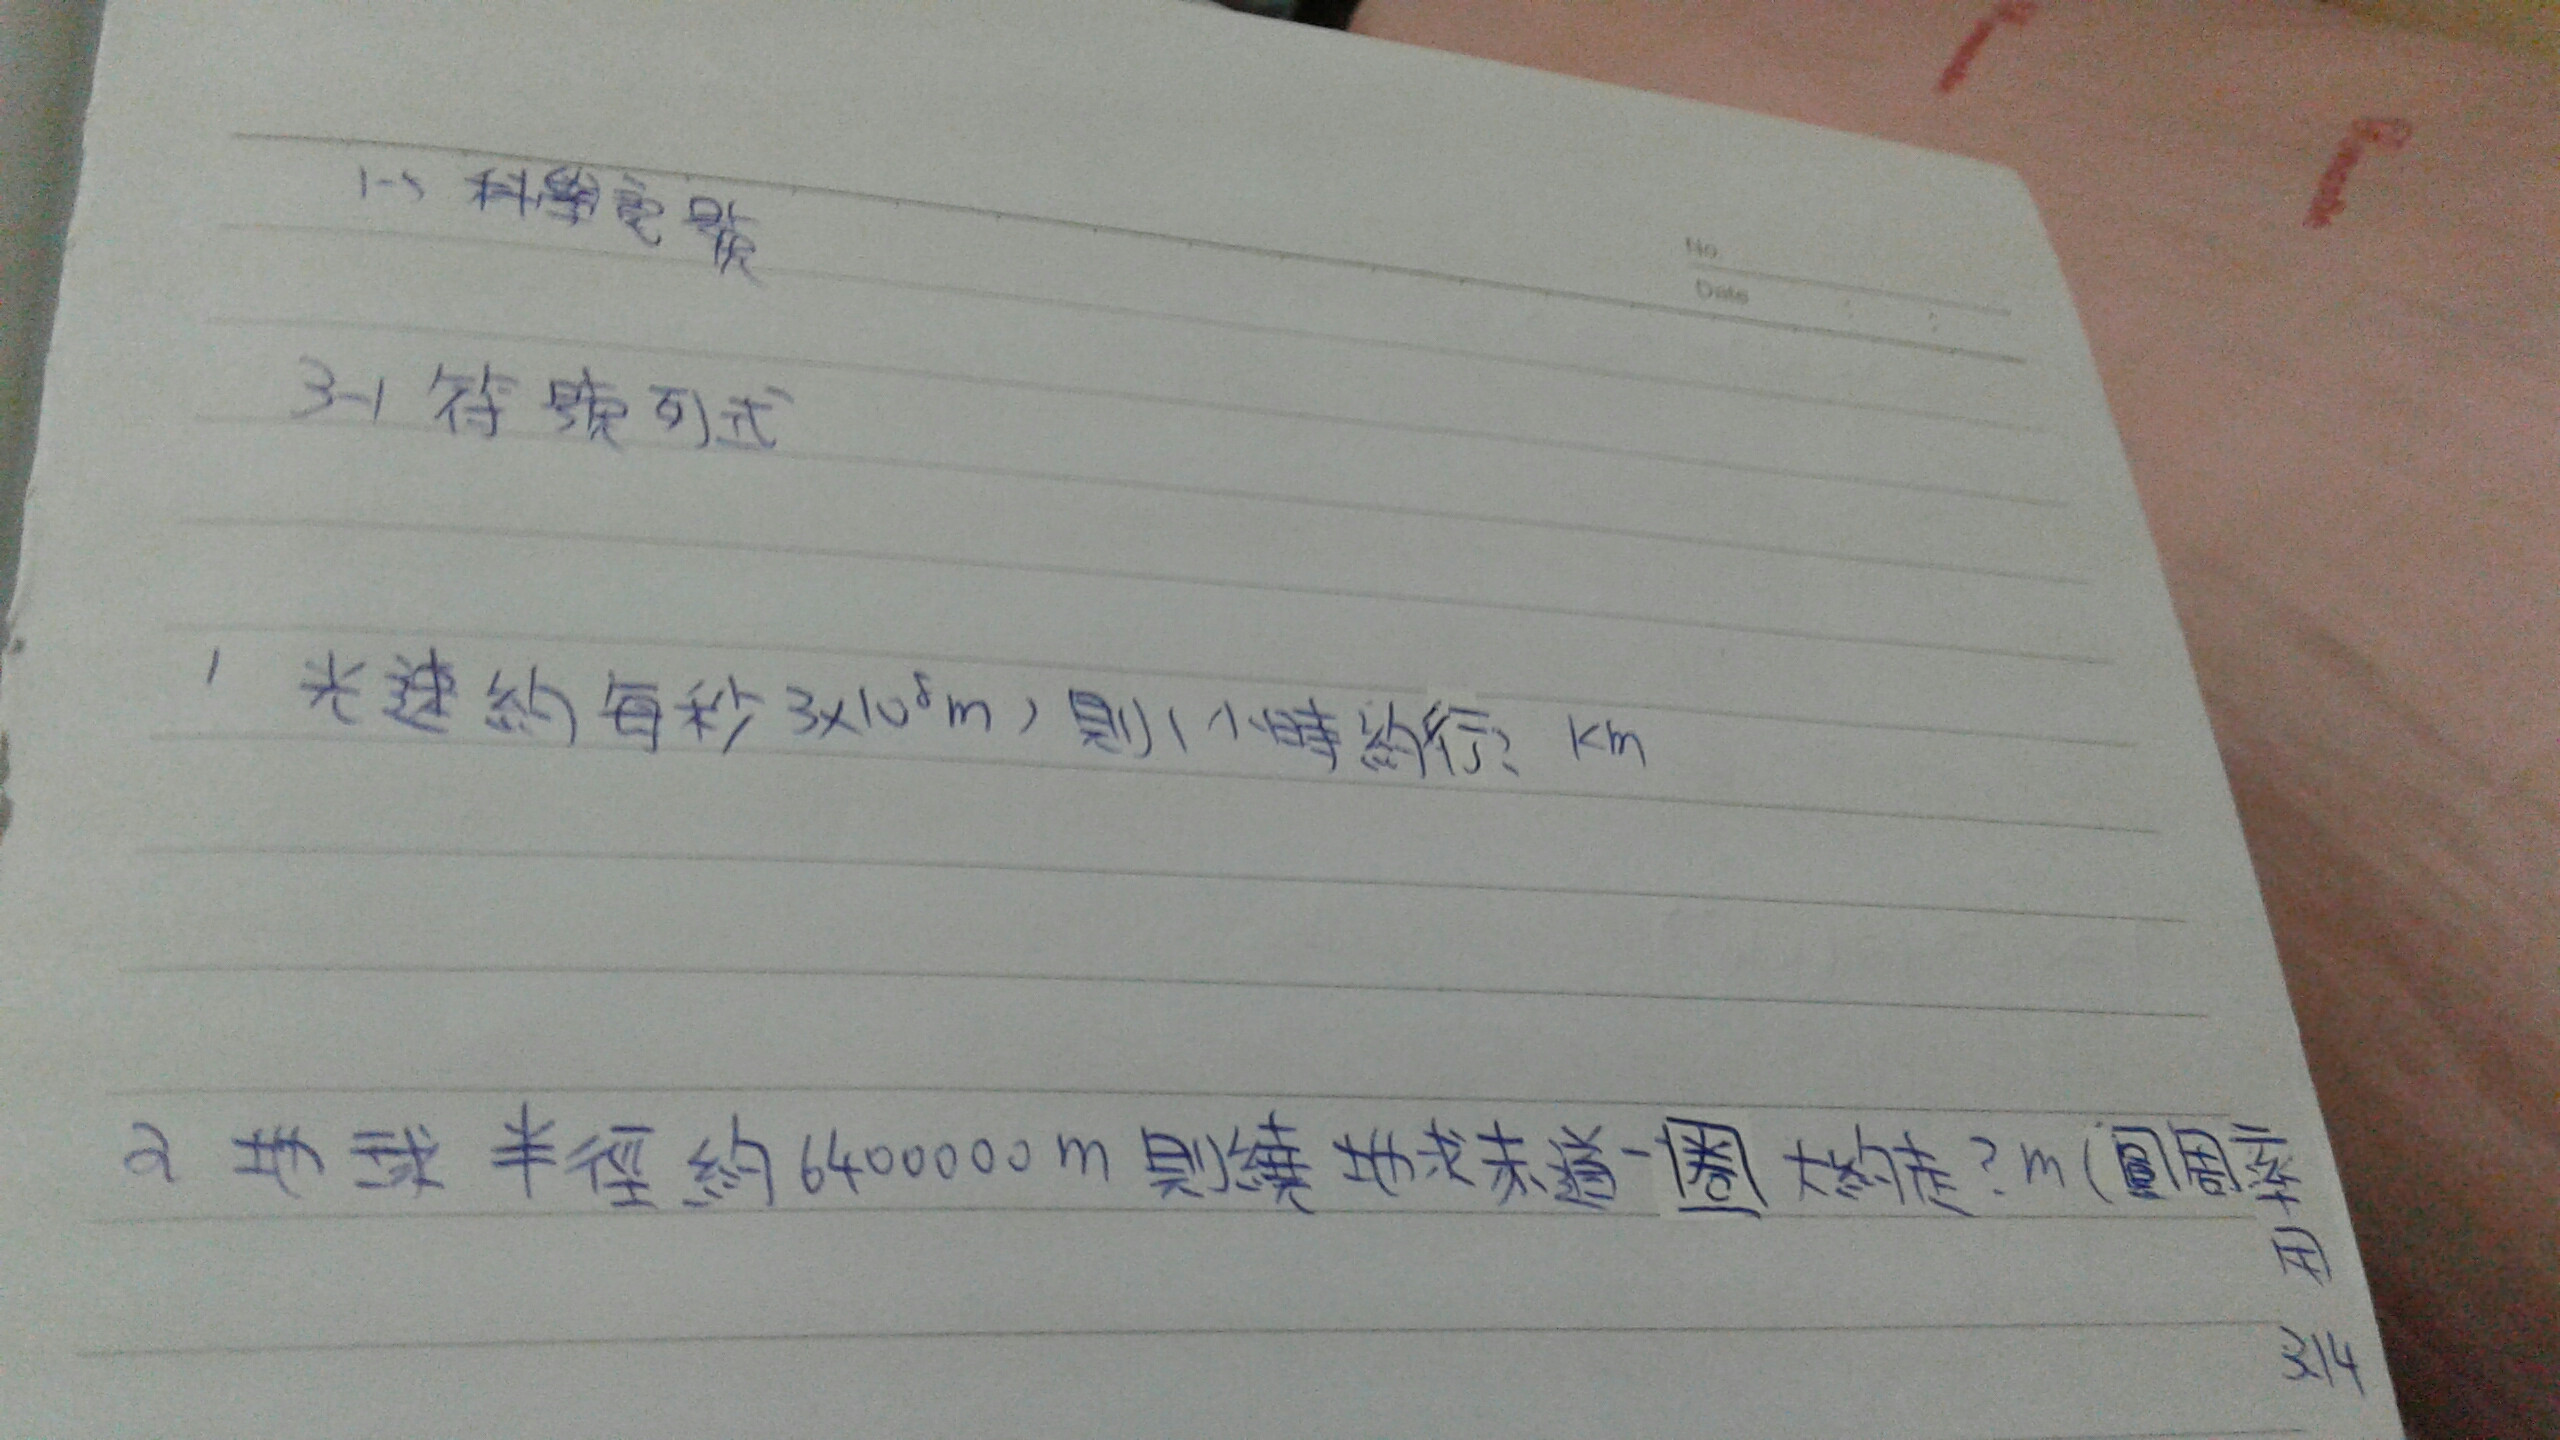 1-5 科學記號
No.
Date
3-1 符號列式
1 光速約每秒3×10⁸m，則1小時約行? km
2 地球半徑約6400000m則繞地球赤道一圈大約走?m(圓周率
用
3.14